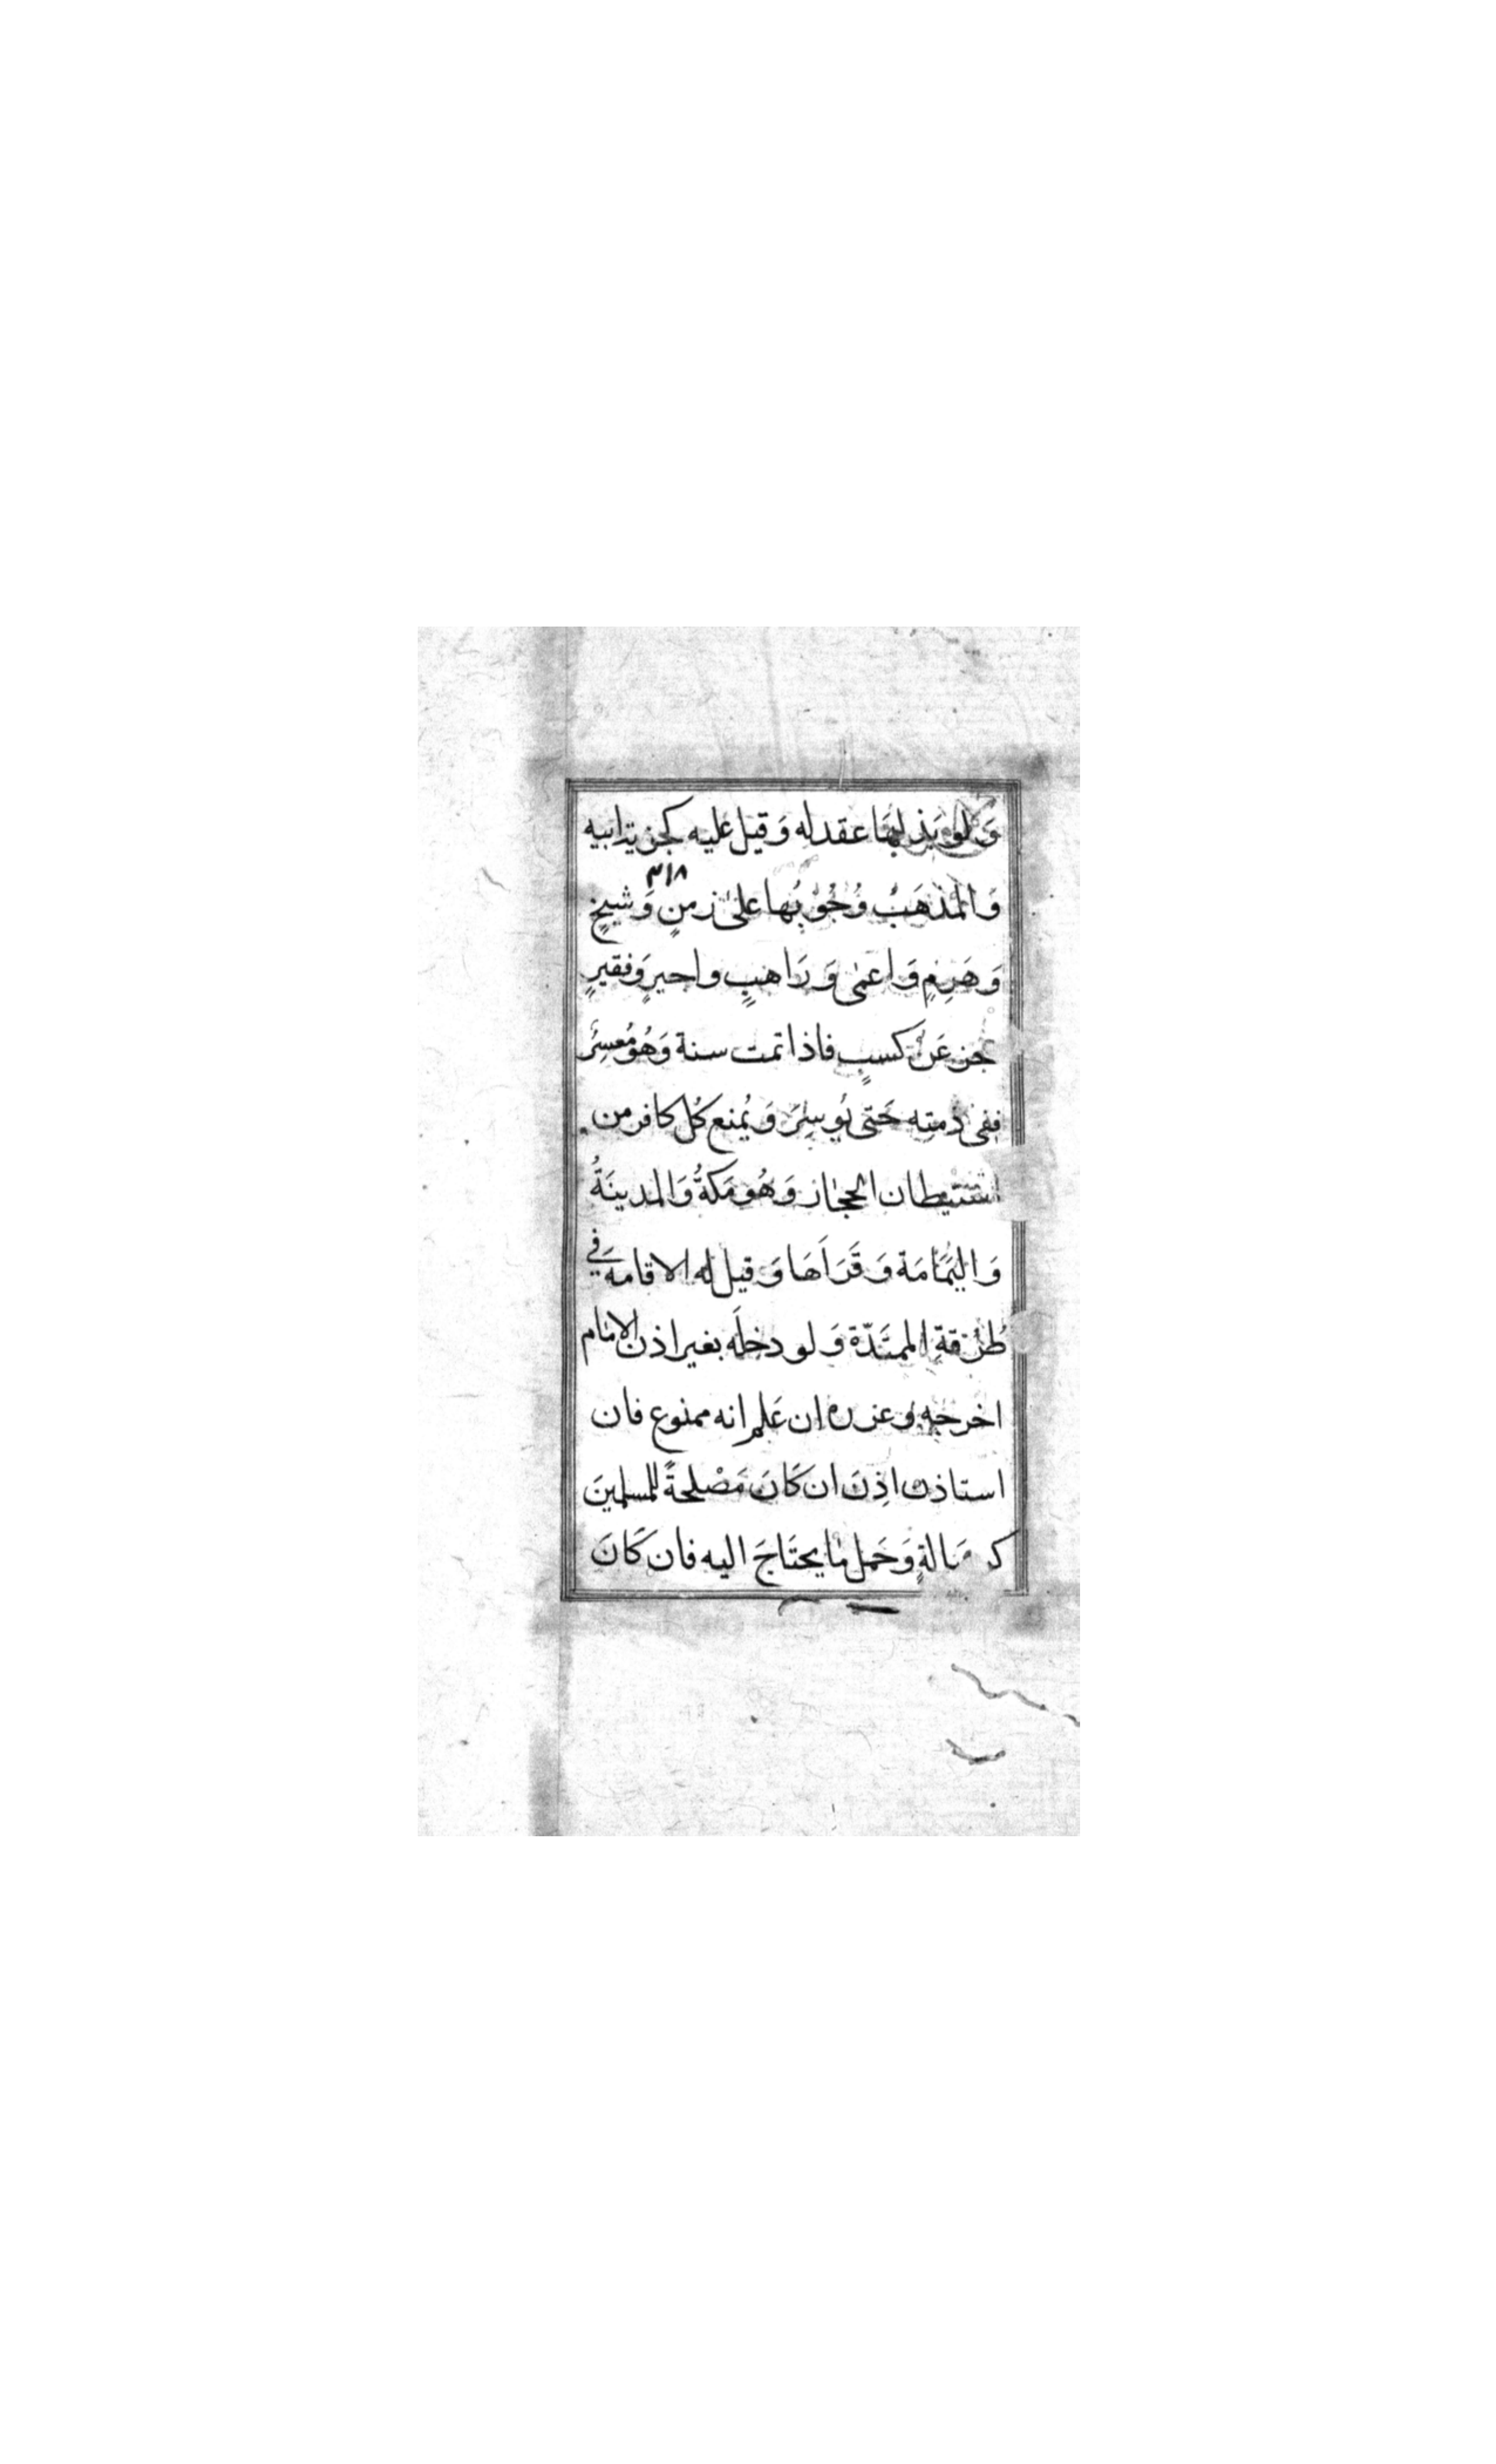 وَلو بَذلهَا عقد له وَقيل عليه كجزية ابيه
٣١٨
وَالمَذهَبُ وُجُوبُها عَلىٰ زمنٍ وَشيخٍ
وَهَرِمٍ وَاعمٰى وَرَاهبٍ واجيرٍ وَفقيرٍ
عجز عَن كسبٍ فاذا تمت سنة وَهُو مُعسِرُ
ففى ذمته حَتى يُوسِرَ وَيُمنع كُل كافر من
استيطان الحجاز وَهُو مَكةُ وَالمدينَةُ
وَاليمَامَة وَقَرَاهَا وَقيل له الاقامة فَي
طُرقةِ الممتَدّة وَلو دخلَه بغير اذن الامام
اخرجه وعزره ان عَلم انه ممنوع فان
استاذن اذِنَ ان كَانَ مَصْلحةً للمسلمينَ
كرسالةٍ وَحَمل مَا يحتَاجَ اليه فان كَانَ